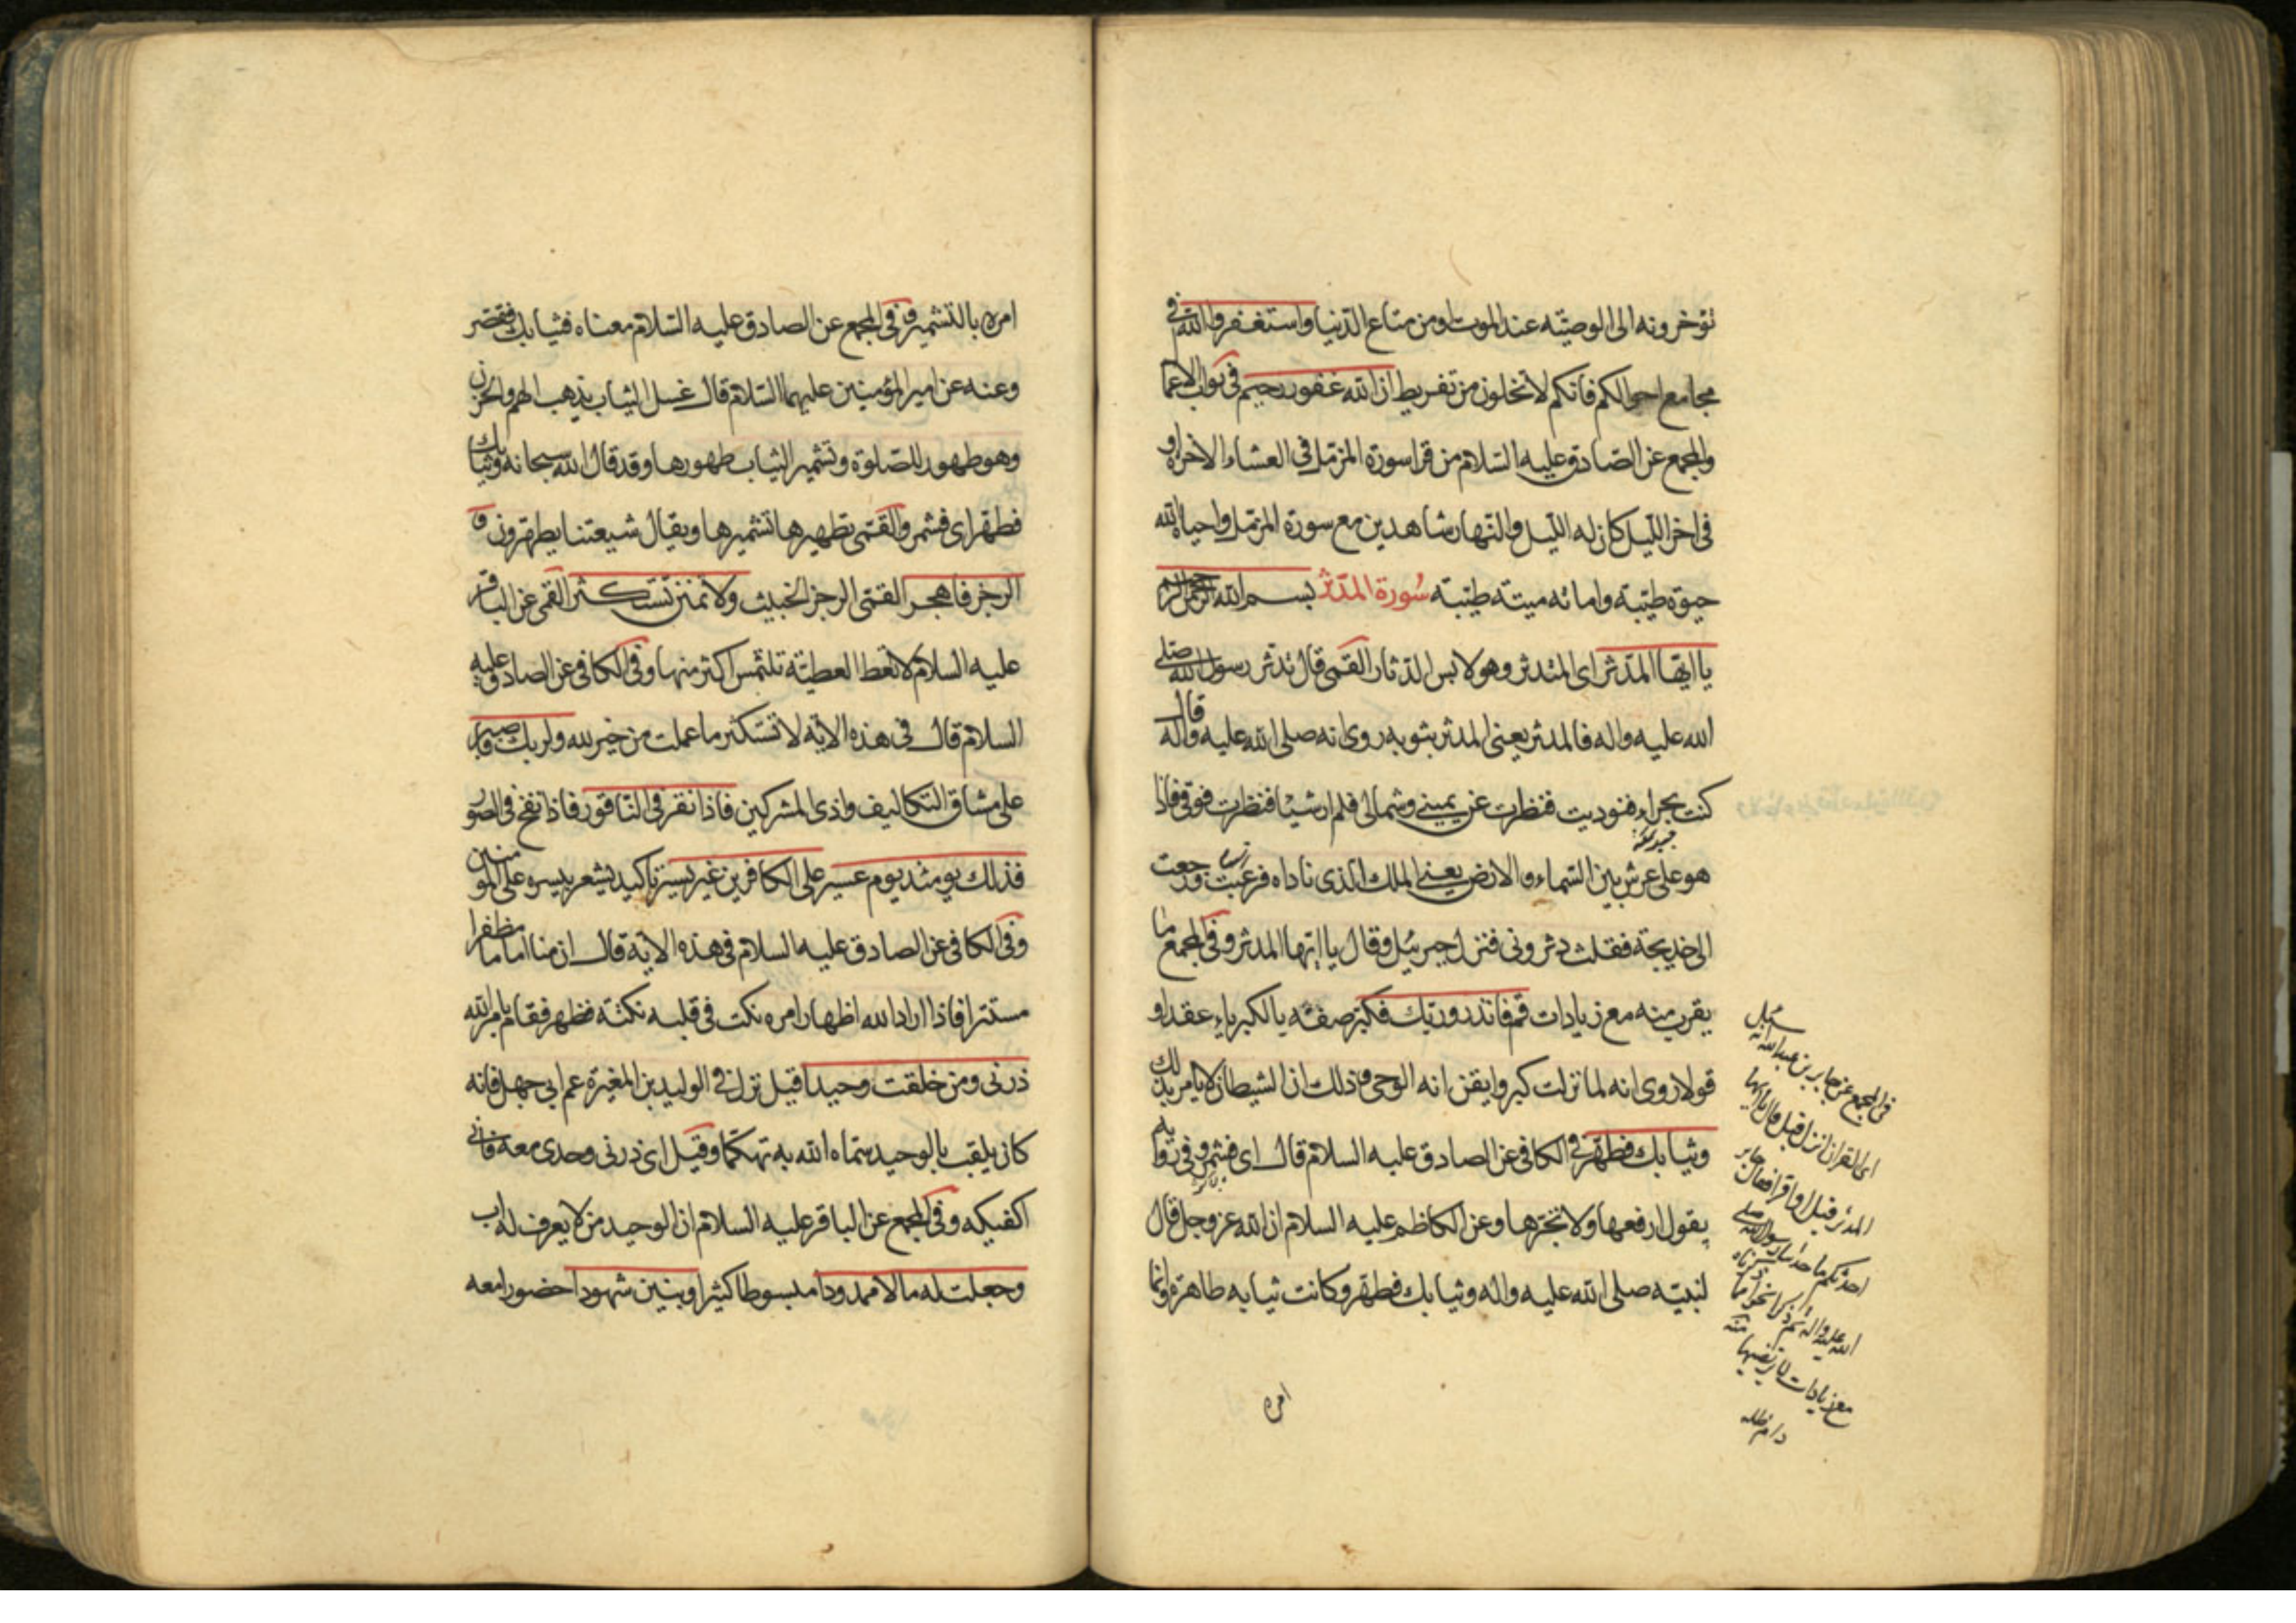 تؤخرونه الى الوصيّة عند الموت او من متاع الدّنيا واستغفروا الله في
مجامع احوالكم فانكم لا تخلون من تفريط ان الله غفور رحيم فى ثواب الاعما
والمجمع عن الصّادق عليه السّلام من قرا سورة المزمّل فى العشاء الاخرة او
فى اخر اللّيل كان له اللّيل والنّهار شاهدين مع سورة المزمّل واحياه الله
حيوة طيّبة واماته ميتة طيّبة سُورة المدّثّر بسم الله الرحمن الرحيم
يا ايّها المدّثر اى المتدثر وهو لابس الدثار القمى قال تدثر رسول الله صلى
الله عليه واله فالمدثر يعنى المدثر بثوبه روى انه صلى الله عليه واله قال
كنت بحراء فنوديت فنظرت عن يمينى وشمالى فلم ار شيئا فنظرت فوقى فاذا
هو على عرش بين السّماء والارض يعنى الملك الذى ناداه فرعبت ورجعت
الى خديجة فقلت دثرونى فنزل جبرئيل وقال يا ايّها المدثر وفى المجمع ما
يقرب منه مع زيادات قم فانذر وربّك فكبّر صفه بالكبرياء عقدا و
قولا روى انه لما نزلت كبر وايقن انه الوحى وذلك ان الشيطان لا يامر بذلك
وثيابك فطهّر فى الكافى عن الصادق عليه السلام قال اى فشمر وفى رواية
يقول ارفعها ولا تجرّها وعن الكاظم عليه السلام ان الله عز وجل قال
لنبيّه صلى الله عليه واله وثيابك فطهّر وكانت ثيابه طاهرة وانما
امره
فى المجمع عن جابر بن عبد الله انه سئل
اى القران انزل قبل قال يا ايها
المدثر فقيل او اقرا فقال جابر
احدثكم ما حدثنا رسول الله صلى
الله عليه واله ثم ذكر نحوا مما ذكرناه
مع زيادات
دام ظله
امره بالتشمير وفى المجمع عن الصادق عليه السّلام معناه فثيابك فقصر
وعنه عن امير المؤمنين عليهما السّلام قال غسل الثياب يذهب الهم والحزن
وهو طهور للصّلوة وتشمير الثياب طهورها وقد قال الله سبحانه وثيابك
فطهّر اى فشمر والقمّى تطهيرها تشميرها ويقال شيعتنا يطهّرون و
الرجز فاهجر القمّى الرجز الخبيث ولا تمنن تستكثر القمى عن الباقر
عليه السلام لا تعط العطيّة تلتمس اكثر منها وفى الكافى عن الصادق عليه
السلام قال فى هذه الاية لا تستكثر ما عملت من خير لله ولربك فاصبر
على مشاق التكاليف واذى المشركين فاذا نقر فى النّاقور فاذا نفخ فى الصّور
فذلك يومئذ يوم عسير على الكافرين غير يسير تاكيد يشعر بيسره على المؤمنين
وفى الكافى عن الصادق عليه السلام فى هذه الاية قال ان منا اماما مظفرا
مستترا فاذا اراد الله اظهار امره نكت فى قلبه نكتة فظهر فقام بامر الله
ذرنى ومن خلقت وحيدا قيل نزل فى الوليد بن المغيرة عم ابى جهل فانه
كان يلقب بالوحيد سمّاه الله به تهكّما وقيل اى ذرنى وحدى معه فانى
اكفيكه وفى المجمع عن الباقر عليه السلام ان الوحيد من لا يعرف له اب
وجعلت له مالا ممدودا مبسوطا كثيرا وبنين شهودا حضورا معه